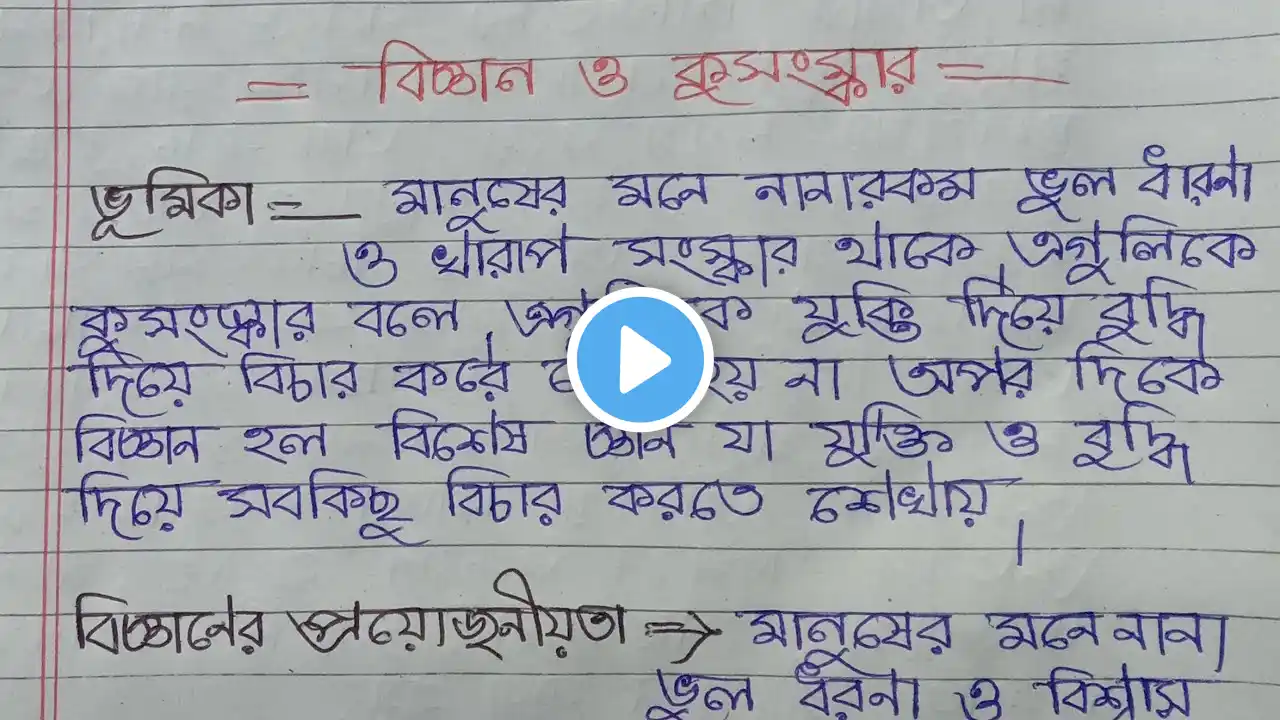 = বিজ্ঞান ও কুসংস্কার =
ভূমিকা = মানুষের মনে নানারকম ভুল ধারনা
ও খারাপ সংস্কার থাকে এগুলিকে
কুসংস্কার বলে, যুক্তি দিয়ে বুদ্ধি
দিয়ে বিচার করে না অপর দিকে
বিজ্ঞান হল বিশেষ জ্ঞান যা যুক্তি ও বুদ্ধি
দিয়ে সবকিছু বিচার করতে শেখায়।
বিজ্ঞানের প্রয়োজনীয়তা => মানুষের মনে নানা
ভুল ধরনা ও বিশ্বাস